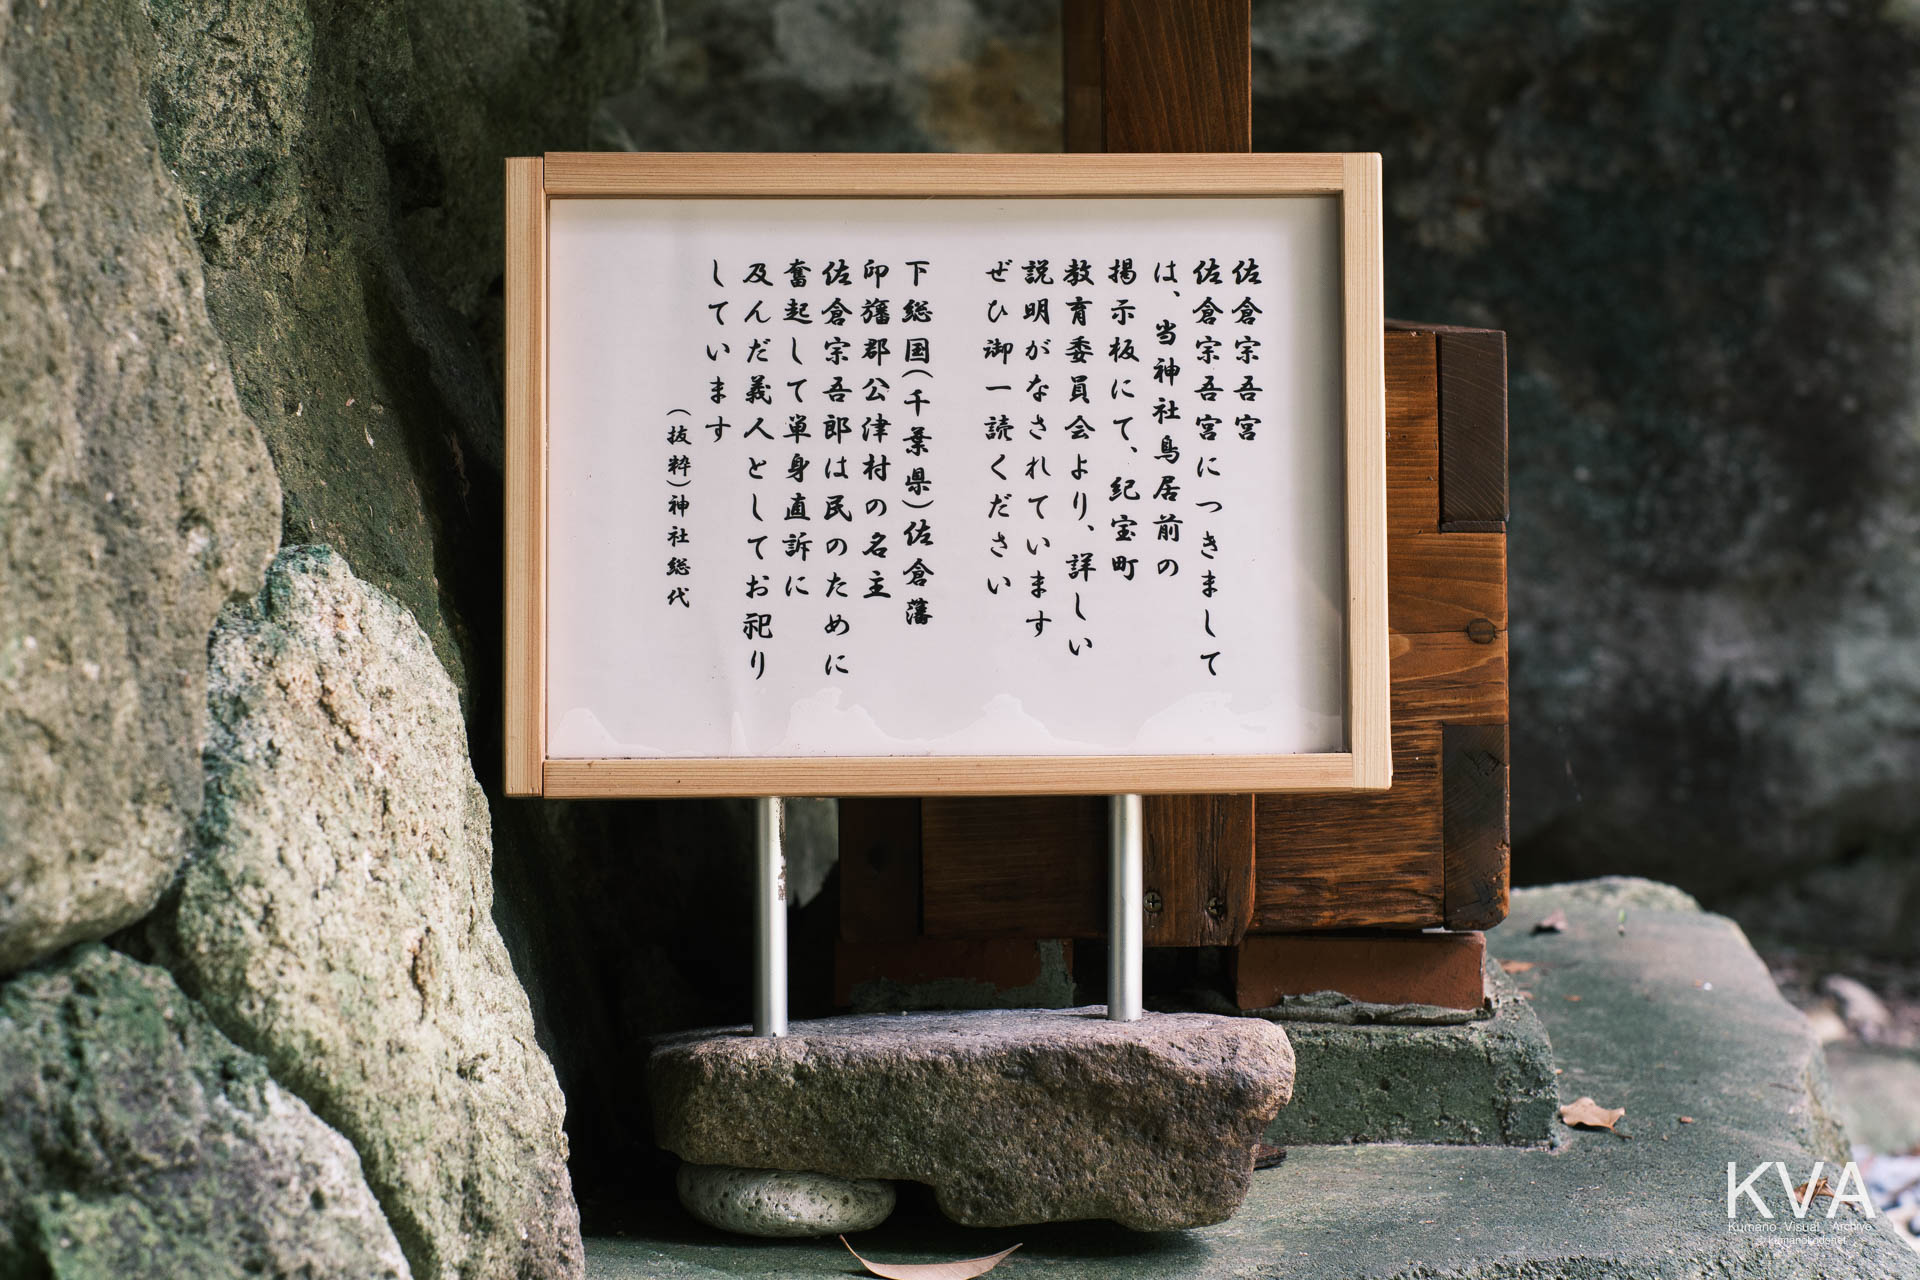 佐倉宗吾宮
佐倉宗吾宮につきまして
は、当神社鳥居前の
掲示板にて、紀宝町
教育委員会より、詳しい
説明がなされています
ぜひ御一読ください
下総国(千葉県)佐倉藩
印旛郡公津村の名主
佐倉宗吾郎は民のために
奮起して単身直訴に
及んだ義人としてお祀り
しています
(抜粋)神社総代
KVA
Kumano Visual Archive